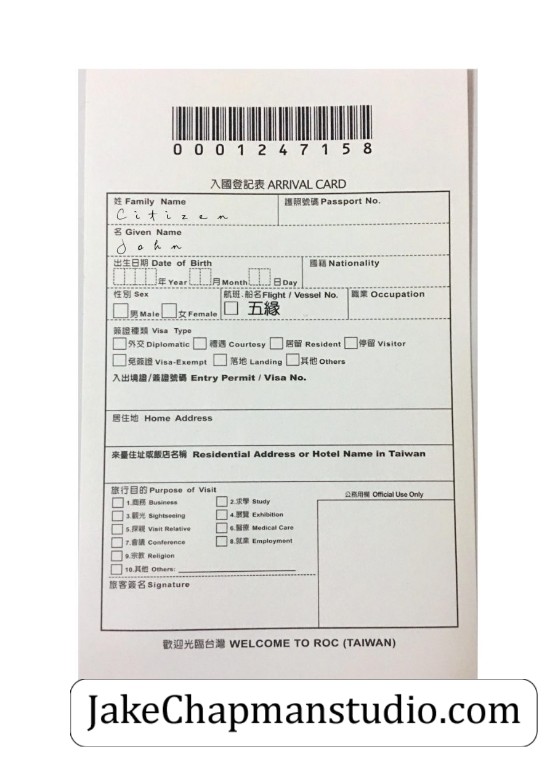 0001247158
入國登記表 ARRIVAL CARD
姓 Family Name 護照號碼 Passport No.
Citizen
名 Given Name
John
出生日期 Date of Birth 國籍 Nationality
年 Year 月 Month 日 Day
性別 Sex 航班.船名 Flight / Vessel No. 職業 Occupation
男 Male 女 Female 五緣
簽證種類 Visa Type
外交 Diplomatic 禮遇 Courtesy 居留 Resident 停留 Visitor
免簽證 Visa-Exempt 落地 Landing 其他 Others
入出境證/簽證號碼 Entry Permit / Visa No.
居住地 Home Address
來臺住址或飯店名稱 Residential Address or Hotel Name in Taiwan
旅行目的 Purpose of Visit 公務用欄 Official Use Only
1.商務 Business 2.求學 Study
3.觀光 Sightseeing 4.展覽 Exhibition
5.探親 Visit Relative 6.醫療 Medical Care
7.會議 Conference 8.就業 Employment
9.宗教 Religion
10.其他 Others:
旅客簽名 Signature
歡迎光臨台灣 WELCOME TO ROC (TAIWAN)
JakeChapmanstudio.com